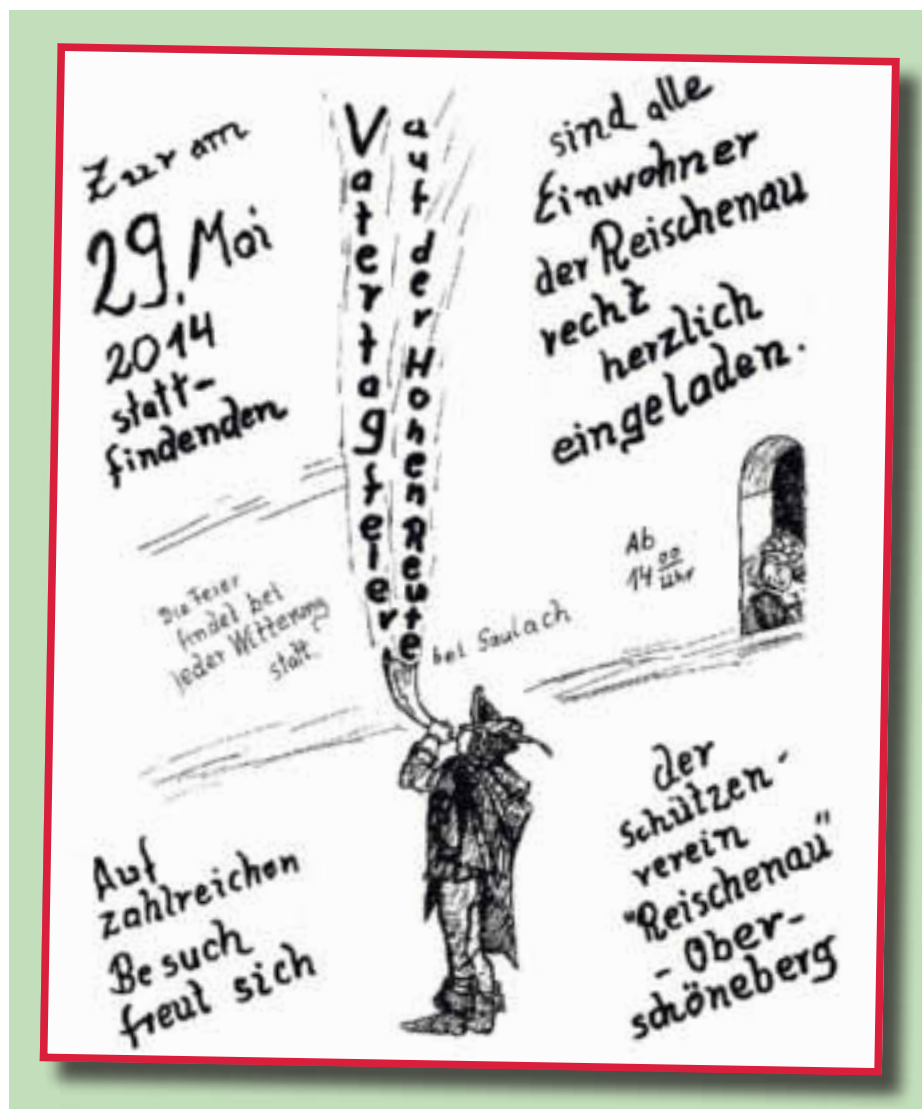 Zur am
29. Mai
2014
statt-
findenden
Vatertagfeier
auf der Hohen Reute
bei Saulach
sind alle
Einwohner
der Reischenau
recht
herzlich
eingeladen.
Ab
14 00 Uhr
Die Feier
findet bei
jeder Witterung
statt.
Auf
zahlreichen
Besuch
freut sich
der
Schützen-
verein
"Reischenau"
- Ober-
schöneberg